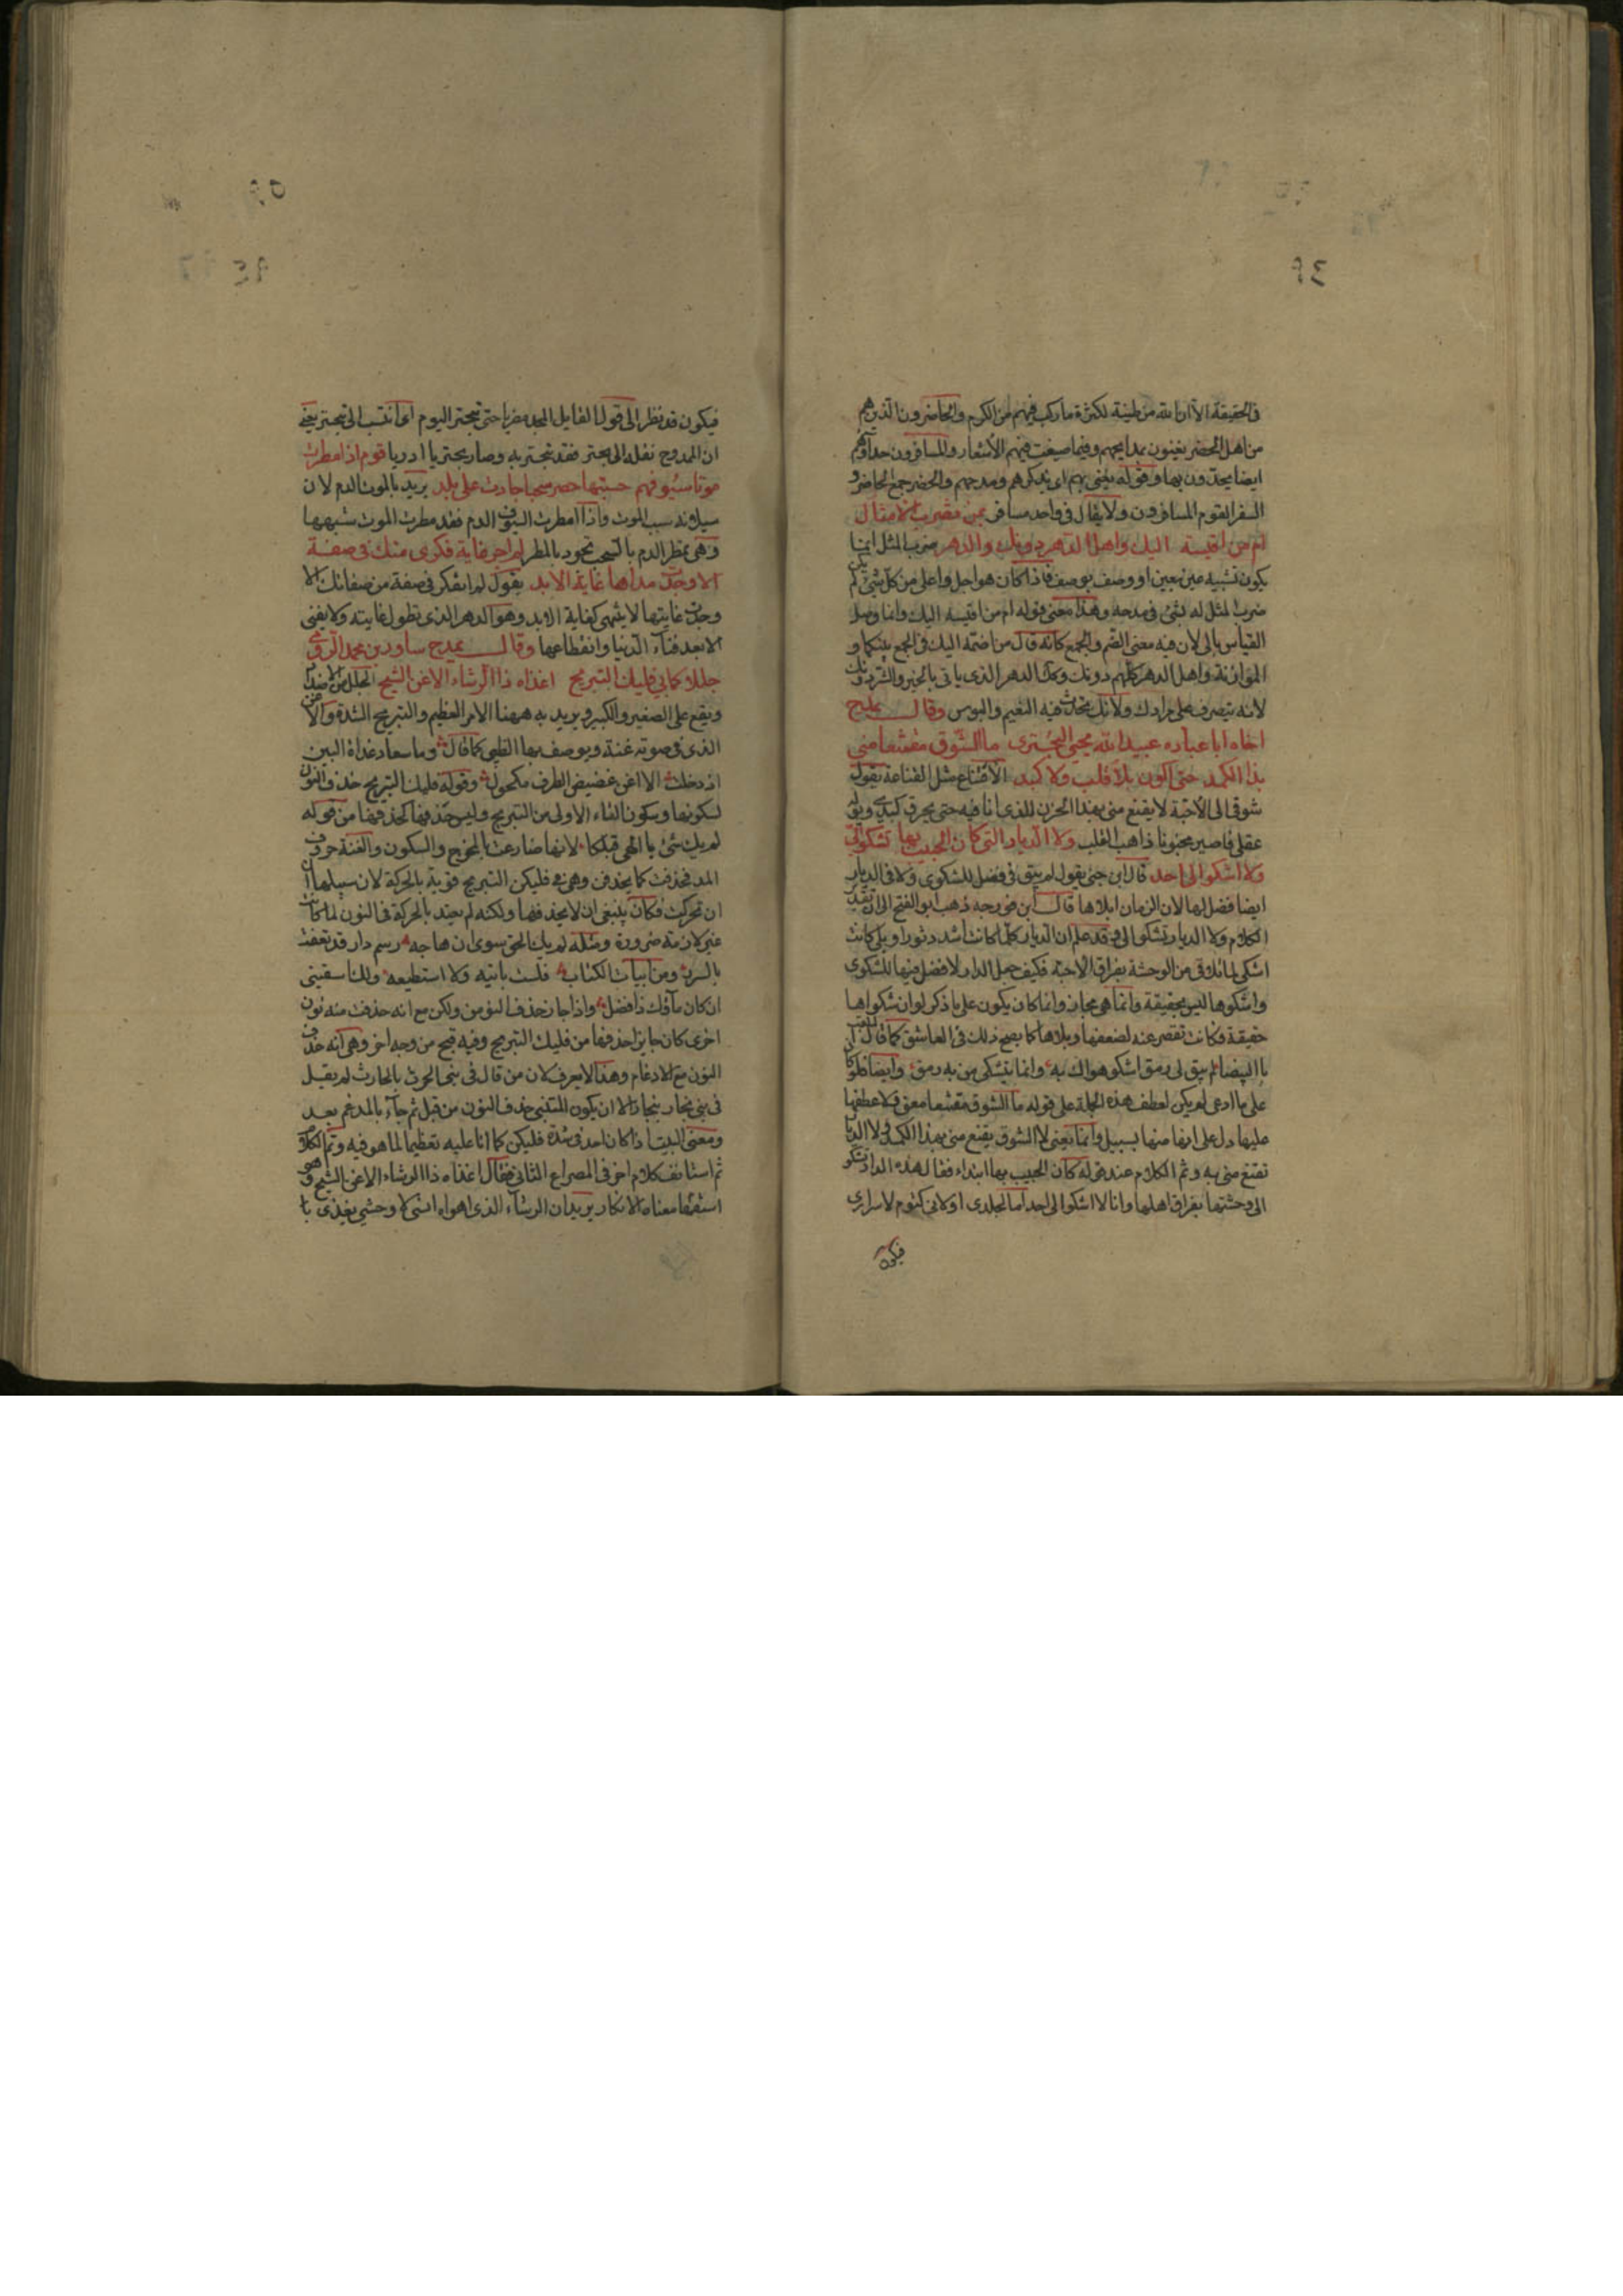 في الحقيقة الا ان الله من طينة لكثرة ما ركب فيهم من الكرم والحاضرون الذين هم
من اهل الحضر يغنون بمدايحهم وفيما صيغت فيهم الأشعار والمسافرون حداؤهم
ايضا يحدون بها وقوله يغنى بهم اى بذكرهم ومدحهم والحضر جمع الحاضر و
السفر القوم المسافرون ولا يقال في واحد مسافر بمن نضرب الامثال
ام من نقيسه اليك واهل الدهر دونك والدهر ضرب المثل انما
يكون تشبيه عين بعين او وصف بوصف فاذا كان هو اجل واعلى من كل شئ لم يكن
ضرب المثل له بشئ في مدحه وهذا معنى قوله ام من نقيسه اليك وانما وصل
القياس بالى لان فيه معنى الضم والجمع كانه قال من اضمه اليك في الجمع بينكما و
الموازنة واهل الدهر كلهم دونك وكذلك الدهر الذى ياتى بالخير والشر دونك
لانه يتصرف على مرادك ولانك تحدث فيه النعيم والبوس وقال يمدح
اخاه ابا عباده عبيد الله يحيى البحترى ما الشوق مقتنعا منى
بذا الكمد حتى اكون بلا قلب ولا كبد الاقتناع مثل القناعة يقول
شوقى الى الأحبة لا يقنع منى بهذا الحزن الذى انا فيه حتى يحرق كبدى ويوله
عقلى فاصير مجنونا ذاهب القلب ولا الديار التى كان الحبيب بها تشكو الى
ولا اشكوا الى احد قال ابن جنى يقول لم يبق فى فضل للشكوى ولا فى الديار
ايضا فضل لها لان الزمان ابلاها قال ابن فورجه ذهب ابو الفتح الى ان تقدير
الكلام ولا الديار تشكوا الى وقد علم ان الديار كلما كانت اشد دثورا وبلى كانت
اشكى لما تلاقى من الوحشة بفراق الاحبة فكيف جعل الدار لا فضل فيها للشكوى
واشكوها ليس بحقيقة وانما هى مجاز وانما كان يكون على ما ذكر لو ان شكواها
حقيقة فكانت تقصر عنه لضعفها وبلاها كما يصح ذلك فى العاشق كما قال
لم يبق لى رمق اشكو هواك به وانما يتشكى من به رمق وايضا فلو كا
على ما ادعى لم يكن لعطف هذه الجملة على قوله ما الشوق مقتنعا معنى فلا عطفها
عليها دل على انها منها بسبيل وانما يعنى لا الشوق يقنع منى بهذا الكمد ولا الديار
تقنع منى به وتم الكلام عند قوله كان الحبيب بها ابتداء فقال هذه الدار تشكو
الى وحشتها بفراق اهلها وانا لا اشكوا الى احد اما لجلدى او لانى كتوم لاسرارى
فيكون
فيكون قد نظر الى قول القايل المجد مضريا حتى تبحتر اليوم اى انتسب الى بحتر يعنى
ان الممدوح نقله الى بحتر فقد تبحتر به وصار بحتريا ادديا قوم اذا مطرت
موتا سيوفهم حسبتها سحبا جادت على بلد يريد بالموت الدم لان
سيلانه سبب الموت واذا امطرت السيوف الدم فقد مطرت الموت شبهها
وهى تمطر الدم بالسحب تجود بالمطر لم اجر غاية فكرى منك فى صفة
الا وجدت مداها غاية الابد يقول لم اتفكر فى صفة من صفاتك الا
وجدت غايتها لا ينتهى كغاية الابد وهو الدهر الذى تطول غايته ولا يفنى
الا بعد فناء الدنيا وانقطاعها وقال يمدح مساور بن محمد الرومى
جللا كما بى فليك التبريح اغذاء ذا الرشاء الاغن الشيح الجلل من الاضداد
ويقع على الصغير والكبير ويريد به ههنا الامر العظيم والتبريح الشدة والاغن
الذى فى صوته غنة ويوصف بها الظبى كما قال وما سعاد غداة البين
اذ رحلت الا اغن غضيض الطرف مكحول وقوله فليك التبريح حذف النون
لسكونها وسكون التاء الاولى من التبريح وليس حذفها كحذفها من قوله
لم يك شئ يا الهى قبلكا لانها ضارعت بالمخرج والسكون والغنة حروف
المد فحذفت كما يحذفن وهى فى فليكن التبريح قوية بالحركة لان سبيلها
ان تحركت فكان ينبغى ان لا يحذفها ولكنه لم يعتد بالحركة فى النون لما كانت
غير لازمة ضرورة ومثله لم يك الحق سوى ان هاجه رسم دار قد تعفت
بالسرر ومن ابيات الكتاب فلست باتيه ولا استطيعه ولاك اسقينى
ان كان ماؤك ذا فضل واذا جاز حذف النون من ولكن مع انه حذفت منه نون
اخرى كان جايز احذفها من فليك التبريح وفيه قبح من وجه اخر وهى انه حذف
النون مع الادغام وهذا لا يعرف لان من قال فى بنى الحرث بالحارث لم يقل
فى بنى نجار بنجار الا ان يكون المتنبى حذف النون من قبل ثم جاء بالمدغم بعد
ومعنى البيت اذا كان احد فى شدة فليكن كما انا عليه تعظيما لما هو فيه وتم الكلام
ثم استانف كلام اخر فى المصراع الثانى فقال اغذاء ذا الرشاء الاغن الشيح وهو
استفهام معناه الانكار يريد ان الرشاء الذى اهواه انسى لا وحشى يغذى با